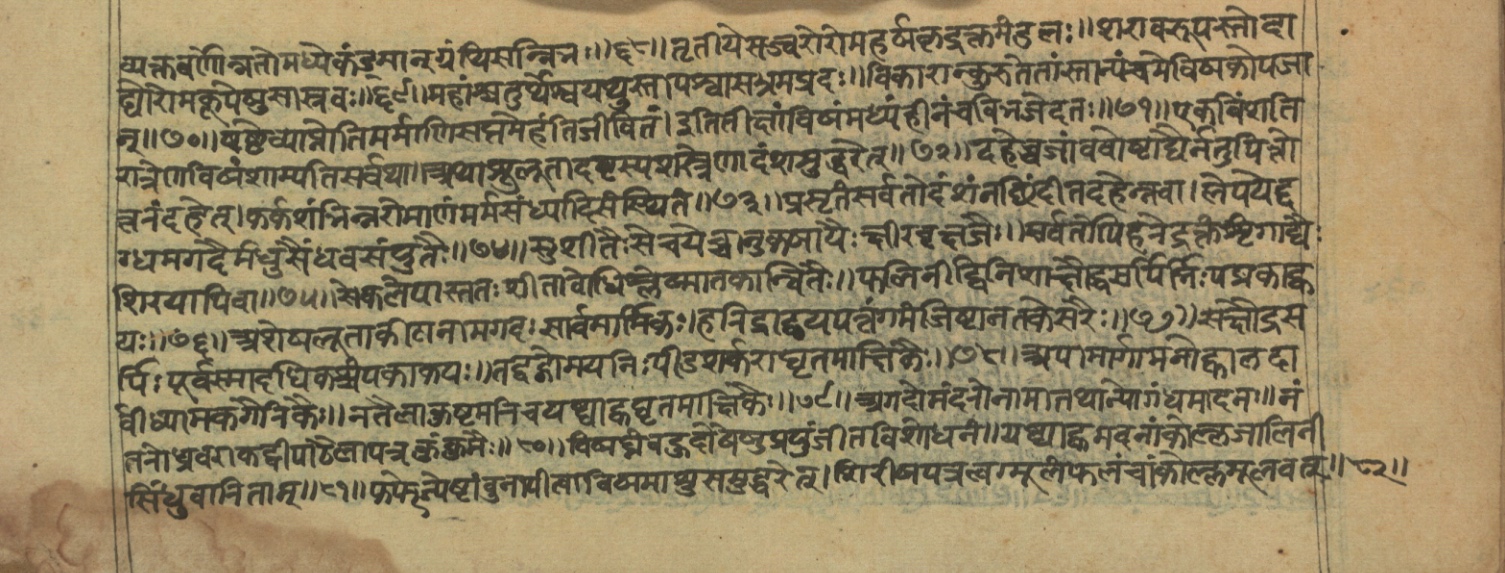 व्यक्तवर्णोन्नतोमध्येकंडूमान्ग्रंथिसन्निभः॥६८॥तृतीयेसज्वरोरोमहर्षकृद्रक्तमंडलः॥शरावरूपस्तोदा
ढ्योरोमकूपेषुसास्त्रवः॥६९॥महांश्चतुर्थेश्वयथुस्तापश्वासभ्रमप्रदः॥विकारान्कुरुतेतांस्तान्पंचमेविषकोपजा
न्॥७०॥षष्ठेव्याप्नोतिमर्माणिसप्तमेहंतिजीवितं।इतितीक्ष्णंविषंमध्यंहीनंचविभजेदतः॥७१॥एकविंशति
रात्रेणविषंशाम्यतिसर्वथा॥अथाशुलूतादष्टस्यशस्त्रेणादंशमुद्धरेत्॥७२॥दहेच्चजांबवोष्टाद्यैर्नतुपित्तो
त्तरंदहेत्।कर्कशंभिन्नरोमाणंमर्मसंध्यादिसंस्थितं॥७३॥प्रसृतंसर्वतोदंशंनछिंदीतदहेन्नवा।लेपयेद्द
ग्धमगदैर्मधुसैंधवसंयुतैः॥७४॥सुशीतैःसेचयेच्चानुकषायैःक्षीरवृक्षजैः॥सर्वतोपिहरेद्रक्तंशृंगाद्यैः
शिरयापिवा॥७५॥सेकलेपास्ततःशीताबोधिश्लेष्मातकान्वितैः॥फलिनीद्विनिशाक्षौद्रसर्पिर्भिःपद्मकाह्व
यः॥७६॥अशेषलूताकीटानामगदःसार्वकार्मिकः।हरिद्राद्वयपत्तंगमंजिष्ठानतकेसरैः॥७७॥सक्षौद्रस
र्पिःपूर्वस्मादधिकश्चंपकाकयः॥तद्वद्गोमयनिःपीडशर्कराघृतमाक्षिकैः॥७८॥अपामार्गामनोह्वालदा
र्वीध्यामकगैरिकैः॥नतैलाकुष्टमरिचयष्ट्याह्वघृतमाक्षिकैः॥७९॥अगदोमंदरोनामातथान्योगंधमादनः॥नं
तरोध्रवराकट्वीपाठैलापत्रकुंकुमैः॥८०॥विषघ्नंबहुदोषेषुप्रयुंजीतविशोधनं॥यष्ट्याह्वमदनांकोल्लजालिनी
सिंधुवारितान्॥८१॥कफेज्येष्टांबुनापीत्वाविषमाशुसमुद्धरेत्।शिरीषपत्रत्वग्मूलंफलंवांकोल्लमूलवत्॥८२॥